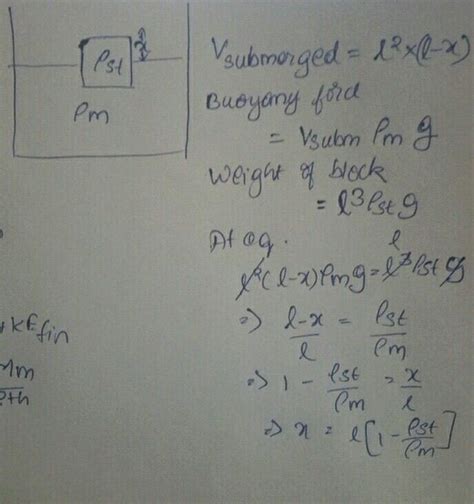 x
ρst
ρm
Vsubmerged = l² × (l-x)
Buoyany ford
= Vsubm ρm g
Weight of block
= l³ ρst g
At eq.
l²(l-x) ρm g = l³ ρst g
l
⇒ (l-x)/l = ρst/ρm
⇒ 1 - ρst/ρm = x/l
⇒ x = l[1 - ρst/ρm]
KEfin